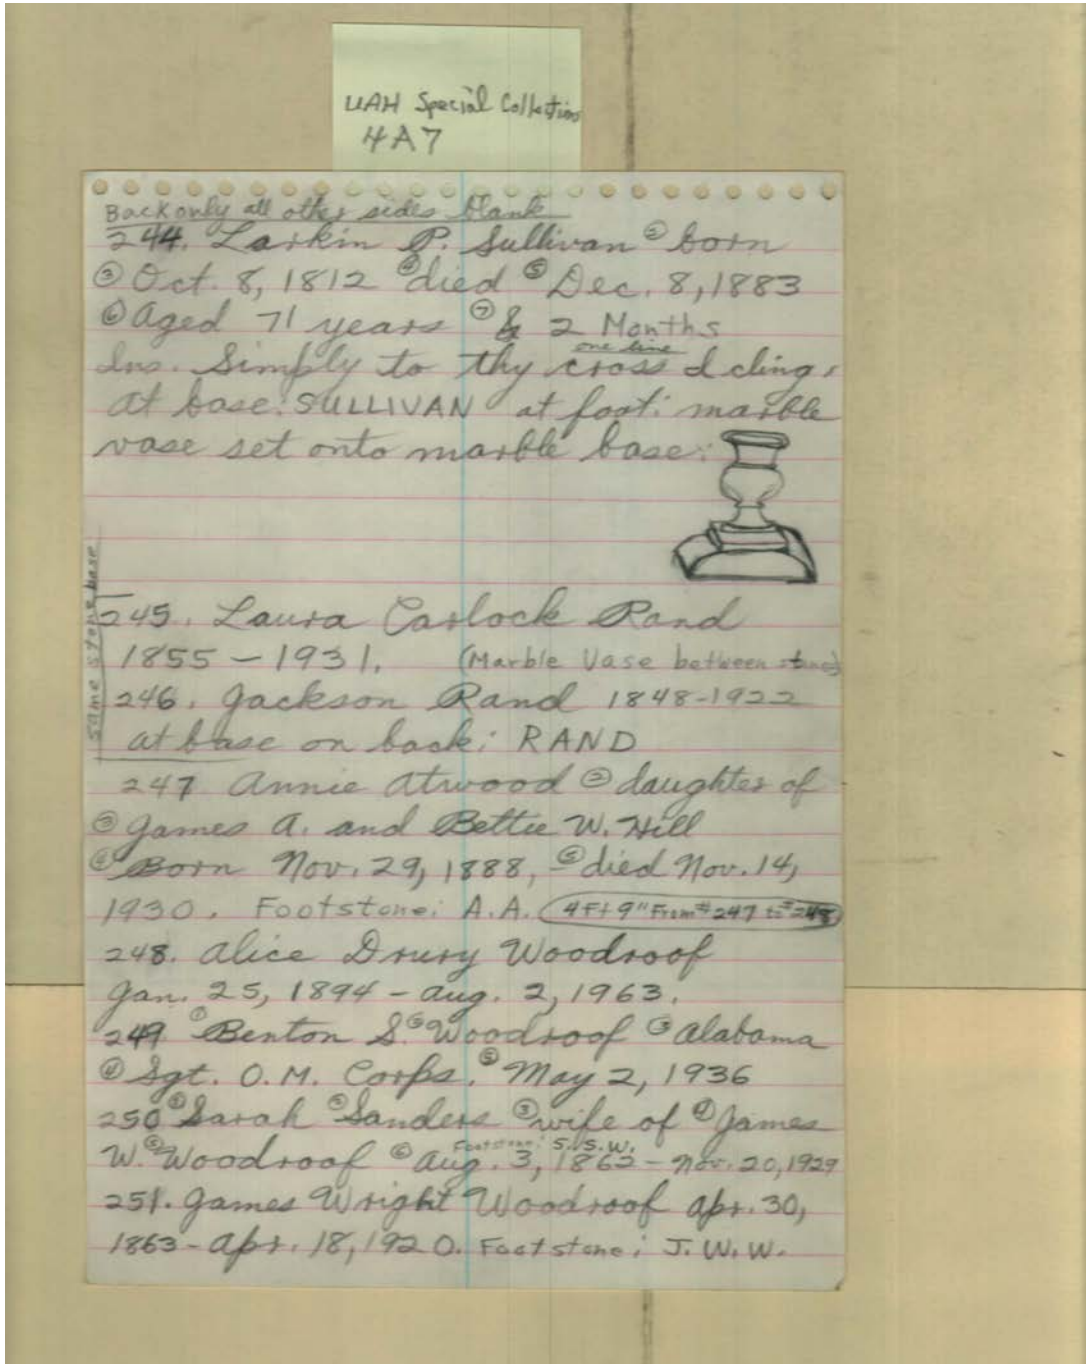 UAH Special Collections
4A7
Back only all other sides blank
244. Larkin P. Sullivan ② born
③ Oct. 8, 1812 ④ died ⑤ Dec. 8, 1883
⑥ Aged 71 years ⑦ & 2 Months
one line
Ins. Simply to thy cross I cling,
at base: SULLIVAN at foot: marble
vase set onto marble base:
same stone base
245. Laura Carlock Rand
1855 – 1931. (Marble Vase between stones)
246. Jackson Rand 1848-1922
at base on back: RAND
247 Annie Atwood ② daughter of
③ James A. and Bettie W. Hill
④ Born Nov. 29, 1888, ⑤ died Nov. 14,
1930. Footstone: A.A. 4 Ft 9" From #247 to #248
248. Alice Drury Woodroof
Jan. 25, 1894 – Aug. 2, 1963.
249 ① Benton S. ② Woodroof ③ Alabama
④ Sgt. Q.M. Corps. ⑤ May 2, 1936
250 ① Sarah ② Sanders ③ wife of ④ James
Footstone: S.S.W.
W. ⑤ Woodroof ⑥ Aug. 3, 1862 – Nov. 20, 1929
251. James Wright Woodroof Apr. 30,
1863 – Apr. 18, 1920. Footstone: J.W.W.